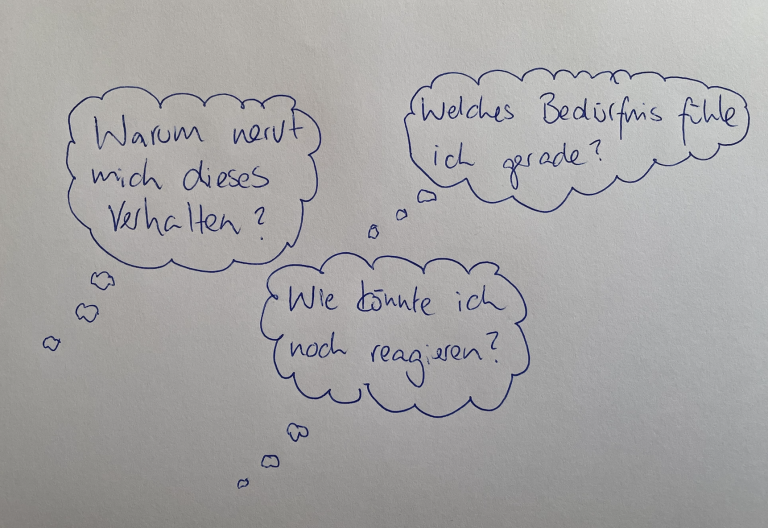 Warum nervt
mich dieses
Verhalten?
Welches Bedürfnis fühle
ich gerade?
Wie könnte ich
noch reagieren?